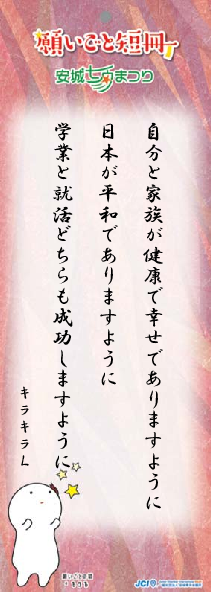 願いごと短冊
安城七夕まつり
自分と家族が健康で幸せでありますように
日本が平和でありますように
学業と就活どちらも成功しますように
キラキラL
願いごと短冊
JCI